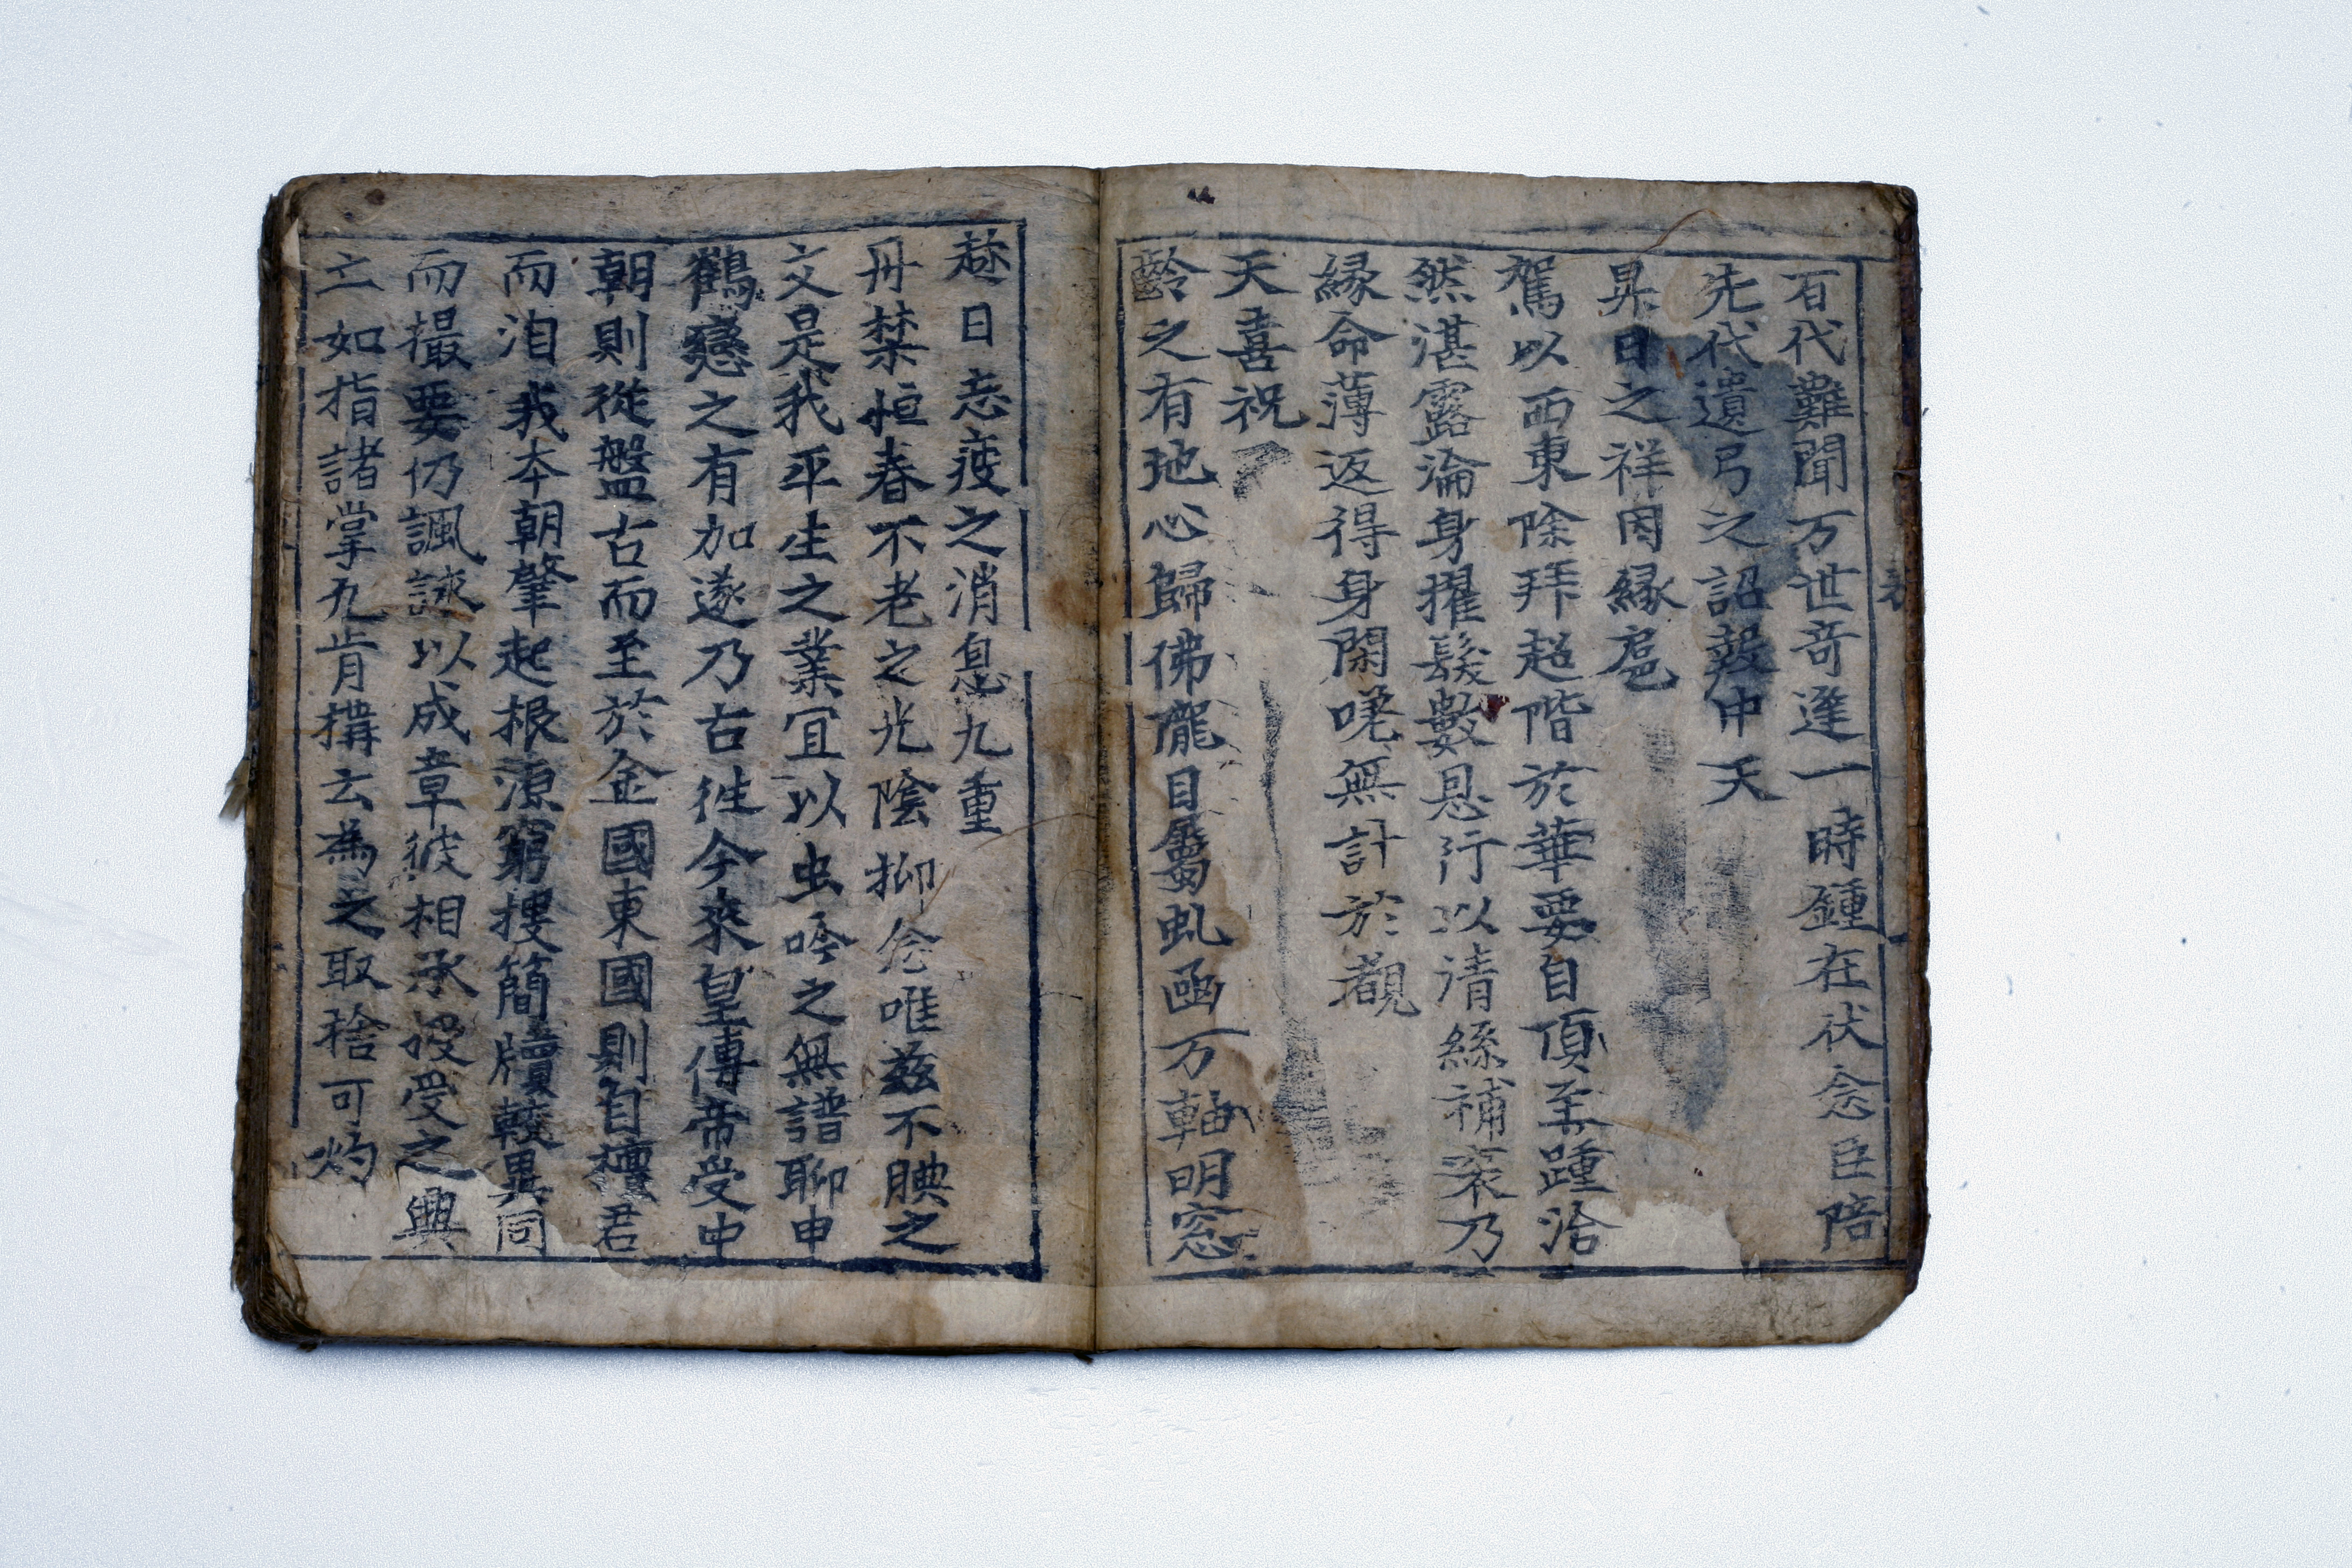 百代難聞万世竒逢一時鍾在伏念臣陪
先代遺弓之詔叅中天
杲日之祥因縁扈
駕以西東除拜超階於華要自頂至踵洽
然湛露淪身擢髮數愆行以清絲補衮乃
縁命薄返得身閑嗟無計於覩
天喜祝
齡之有地心歸佛龍目屬虬函万軸明窓
趂日忘疲之消息九重
丹禁恒春不老之光陰抑念唯兹不腆之
文是我平生之業宜以虫吟之無譜聊申
鶴戀之有加遂乃古徃今來皇傳帝受中
朝則從盤古而至於金國東國則自檀君
而洎我本朝肇起根源窮搜簡牘較異同
而撮要仍諷詠以成章彼相承授受之興
亡如指諸掌凡肯搆云為之取捨可灼